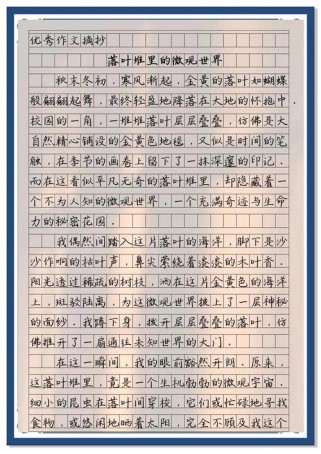 优秀作文摘抄
落叶堆里的微观世界
秋末冬初，寒风渐起，金黄的落叶如蝴蝶
般翩翩起舞，最终轻盈地降落在大地的怀抱中.
校园的一角，一堆堆落叶层层叠叠，仿佛是大
自然精心铺设的金黄色地毯，又似是时间的笔
触，在季节的画卷上留下了一抹深邃的印记.
而在这看似平凡无奇的落叶堆里，却隐藏着一
个不为人知的微观世界，一个充满奇迹与生命
力的秘密花园.
我偶然间踏入这片落叶的海洋，脚下是沙
沙作响的枯叶声，鼻尖萦绕着淡淡的木叶香.
阳光透过稀疏的树枝，洒在这片金黄色的海洋
上，斑驳陆离，为这微观世界披上了一层神秘
的面纱.我蹲下身，拨开层层叠叠的落叶，仿
佛推开了一扇通往未知世界的大门.
在这一瞬间，我的眼前豁然开朗.原来，
这落叶堆里，竟是一个生机勃勃的微观宇宙.
细小的昆虫在落叶间穿梭，它们或忙碌地寻找
食物，或悠闲地晒着太阳，完全不顾及我这个